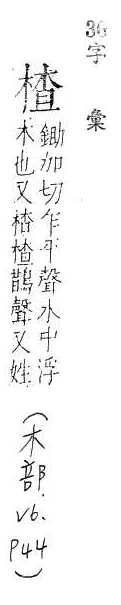 36字彙
楂
鋤加切乍平聲水中浮
木也又楂楂鵲聲又姓
(木部 v6. P44)